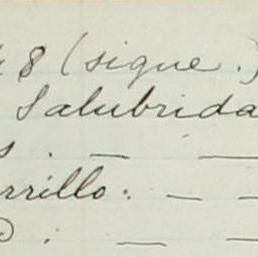 8 (sigue.)
Salubrida
s. — —
rrillo: — —
: — —